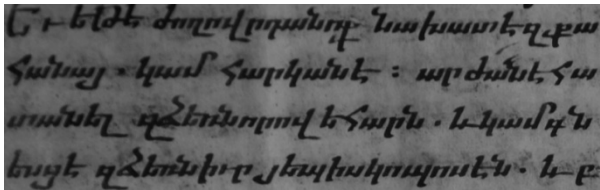 Եւ եթէ ժողովրդանոց նախատէ զքա
հանայ. կամ հարկանէ : արժանէ հա
տանել զձեռնորով եհարն. և կամ գն
եսցէ զձեռնիւր յեպիսկոպոսէն. և ը